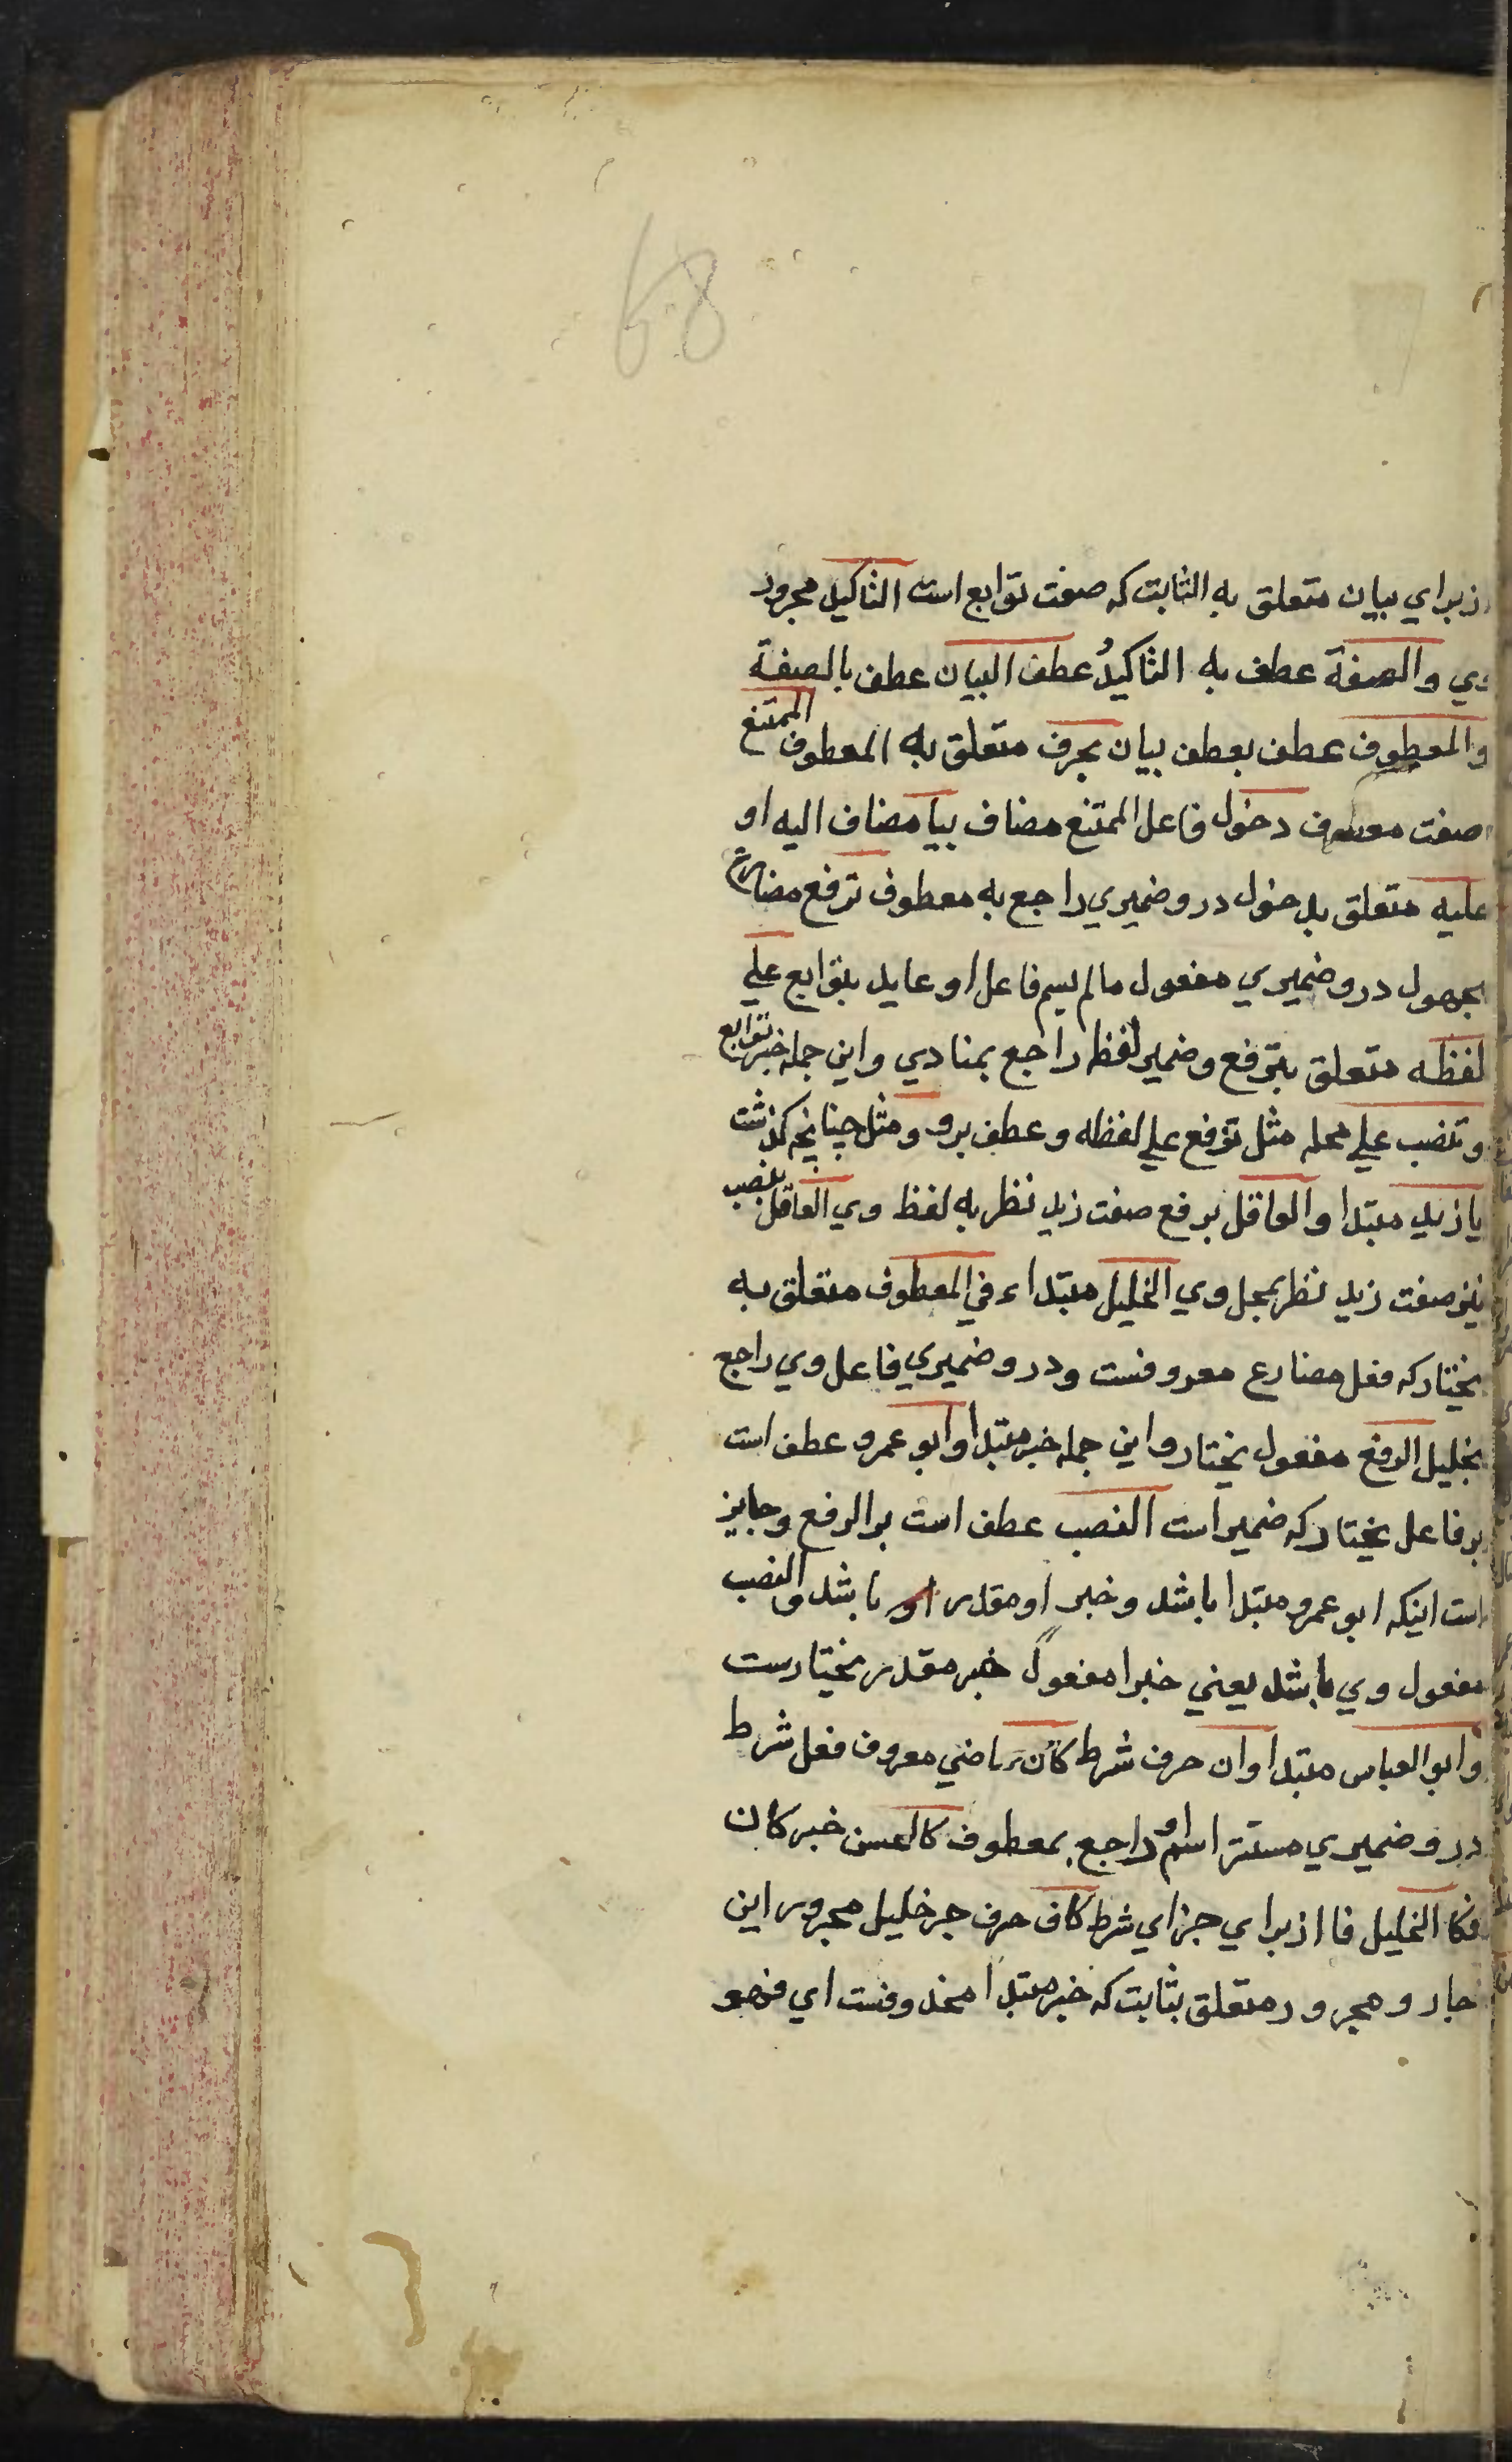 68
از براي بيان متعلق به الثابت كه صفت توابع است التاكيد مجرور
وي والصفة عطف به التاكيدُ عطف البيان عطف بالصفة
والمعطوف عطف بعطف بيان بحرف متعلق به المعطوف الممتنع
صفت معطوف دخول فاعل الممتنع مضاف بيا مضاف اليه او
عليه متعلق بدخول درو ضميري راجع به معطوف ترفع مضارع
مجهول درو ضميري مفعول مالم يسم فاعل او عايد بتوابع علي
لفظه متعلق بترفع وضمير لفظه راجع بمنادي واين جمله خبر توابع
وتنصب علي محله مثل ترفع علي لفظه وعطف برو ومثل چنانچه كذشت
يا زيد مبتدا والعاقل برفع صفت زيد نظر به لفظ وي العاقل بنصب
نيز صفت زيد نظر بمحل وي الخليل مبتداء في المعطوف متعلق به
يختار كه فعل مضارع معروفست ودرو ضميري فاعل وي راجع
بخليل الرفع مفعول يختار واين جمله خبر مبتدا وابو عمرو عطف است
بر فاعل يختار كه ضمير است النصب عطف است بر الرفع وجايز
است اينكه ابو عمرو مبتدا باشد وخبر او مقدر باشد والنصب
مفعول وي باشد يعني خبرا مفعول خبر مقدر يختارست
وابو العباس مبتدا وان حرف شرط كان ماضي معروف فعل شرط
درو ضميري مستتر اسم او راجع بمعطوف كالحسن خبر كان
فكا الخليل فا از براي جزاي شرط كاف حرف جر خليل مجرور اين
جار ومجرور متعلق بثابت كه خبر مبتدا محذوفست اي فهو